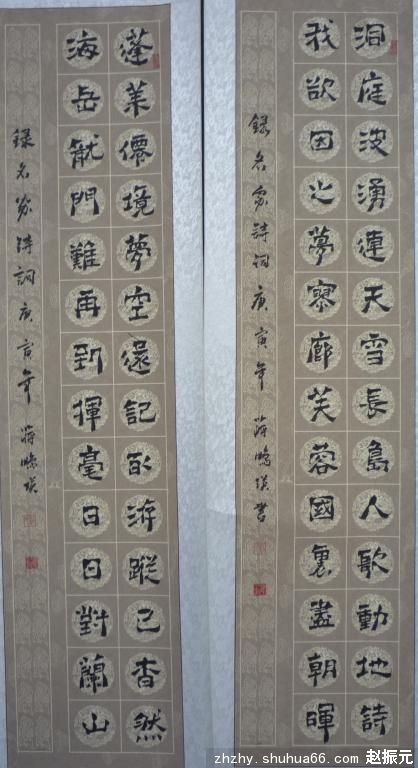 洞庭波湧連天雪長島人歌動地詩
我欲因之夢寥廓芙蓉國裏盡朝暉
錄名家詩詞庚寅年 蔣鵬瑛書
蓬萊僊境夢空還記取游蹤已杳然
海岳龍門難再到揮毫日日對蘭山
錄名家詩詞庚寅年 蔣鵬瑛
zhzhy.shuhua66.com 赵振元